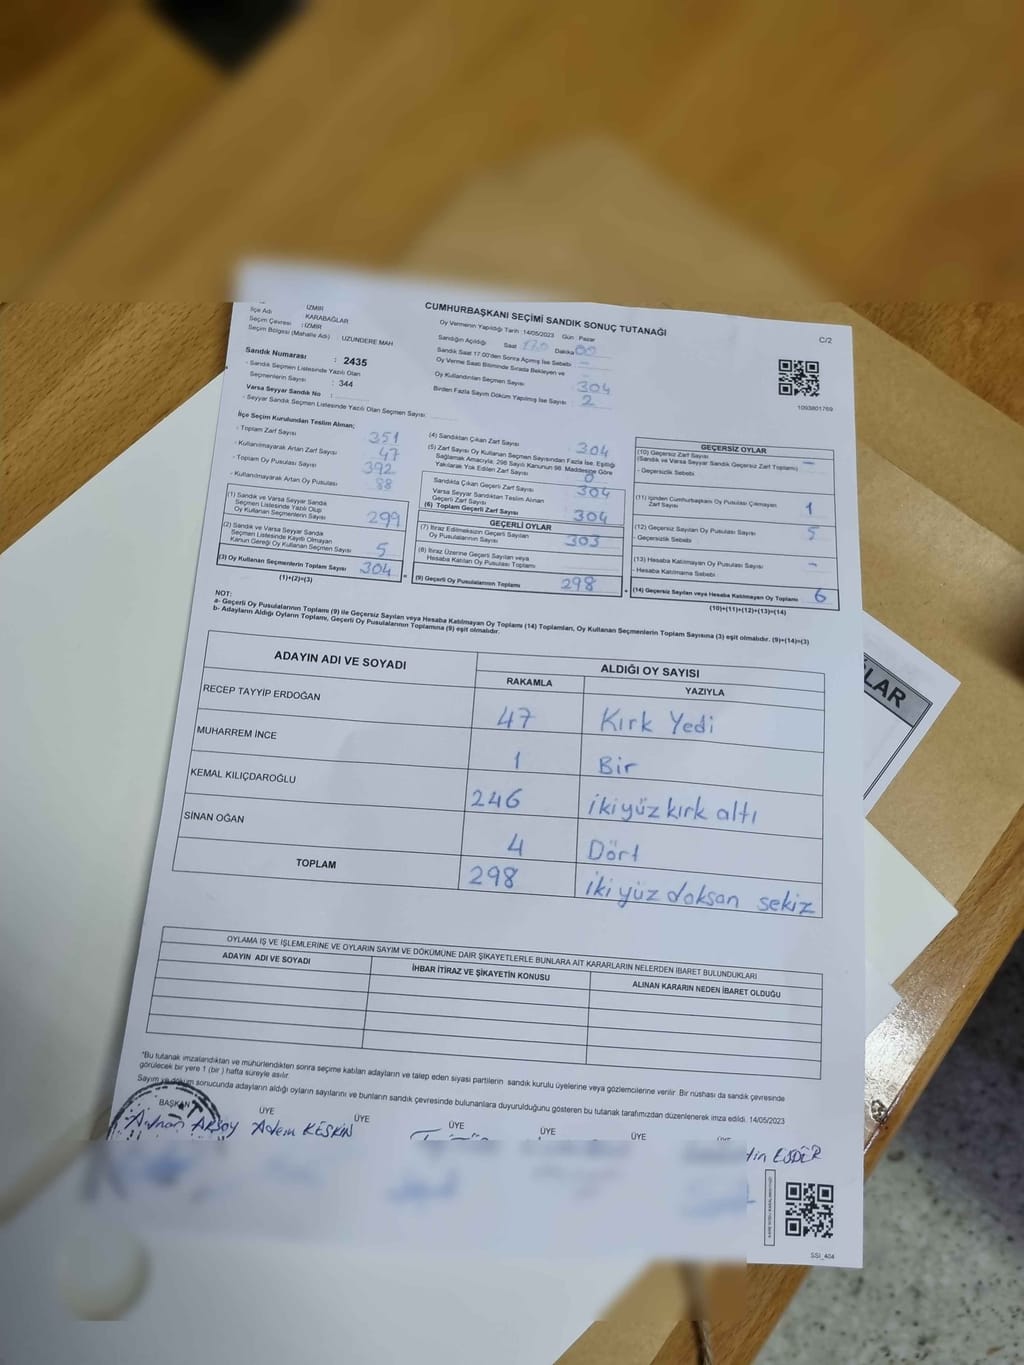 İZMİR
İlçe Adı : KARABAĞLAR
Seçim Çevresi : İZMİR
Seçim Bölgesi (Mahalle Adı) : UZUNDERE MAH
Sandık Numarası : 2435
- Sandık Seçmen Listesinde Yazılı Olan
Seçmenlerin Sayısı : 344
Varsa Seyyar Sandık No :
- Seyyar Sandık Seçmen Listesinde Yazılı Olan Seçmen Sayısı:
CUMHURBAŞKANI SEÇİMİ SANDIK SONUÇ TUTANAĞI
C/2
Oy Vermenin Yapıldığı Tarih : 14/05/2023 Gün : Pazar
Sandığın Açıldığı Saat Dakika 00
Sandık Saat 17:00'den Sonra Açılmış İse Sebebi
Oy Verme Saati Bitiminde Sırada Bekleyen ve
Oy Kullandırılan Seçmen Sayısı 304
Birden Fazla Sayım Döküm Yapılmış İse Sayısı : 2
1093801769
İlçe Seçim Kurulundan Teslim Alınan;
- Toplam Zarf Sayısı 351
- Kullanılmayarak Artan Zarf Sayısı 47
- Toplam Oy Pusulası Sayısı 392
- Kullanılmayarak Artan Oy Pusulası 88
(1) Sandık ve Varsa Seyyar Sandık
Seçmen Listesinde Yazılı Olup
Oy Kullanan Seçmenlerin Sayısı 299
(2) Sandık ve Varsa Seyyar Sandık
Seçmen Listesinde Kayıtlı Olmayan
Kanun Gereği Oy Kullanan Seçmen Sayısı 5
(3) Oy Kullanan Seçmenlerin Toplam Sayısı 304
(1)+(2)=(3)
(4) Sandıktan Çıkan Zarf Sayısı 304
(5) Zarf Sayısı Oy Kullanan Seçmen Sayısından Fazla İse, Eşitliği
Sağlamak Amacıyla, 298 Sayılı Kanunun 98. Maddesine Göre
Yakılarak Yok Edilen Zarf Sayısı 0
Sandıkta Çıkan Geçerli Zarf Sayısı 304
Varsa Seyyar Sandıktan Teslim Alınan
Geçerli Zarf Sayısı
(6) Toplam Geçerli Zarf Sayısı 304
GEÇERLİ OYLAR
(7) İtiraz Edilmeksizin Geçerli Sayılan
Oy Pusulalarının Sayısı 303
(8) İtiraz Üzerine Geçerli Sayılan veya
Hesaba Katılan Oy Pusulası Toplamı
(9) Geçerli Oy Pusulalarının Toplamı 298
GEÇERSİZ OYLAR
(10) Geçersiz Zarf Sayısı
(Sandık ve Varsa Seyyar Sandık Geçersiz Zarf Toplamı) -
- Geçersizlik Sebebi
(11) İçinden Cumhurbaşkanı Oy Pusulası Çıkmayan
Zarf Sayısı 1
(12) Geçersiz Sayılan Oy Pusulası Sayısı 5
- Geçersizlik Sebebi
(13) Hesaba Katılmayan Oy Pusulası Sayısı -
- Hesaba Katılmama Sebebi
(14) Geçersiz Sayılan veya Hesaba Katılmayan Oy Toplamı 6
(10)+(11)+(12)+(13)=(14)
NOT:
a- Geçerli Oy Pusulalarının Toplamı (9) ile Geçersiz Sayılan veya Hesaba Katılmayan Oy Toplamı (14) Toplamları, Oy Kullanan Seçmenlerin Toplam Sayısına (3) eşit olmalıdır. (9)+(14)=(3)
b- Adayların Aldığı Oyların Toplamı, Geçerli Oy Pusulalarının Toplamına (9) eşit olmalıdır.
ADAYIN ADI VE SOYADI
ALDIĞI OY SAYISI
RAKAMLA YAZIYLA
RECEP TAYYİP ERDOĞAN 47 Kırk Yedi
MUHARREM İNCE 1 Bir
KEMAL KILIÇDAROĞLU 246 ikiyüz kırk altı
SİNAN OĞAN 4 Dört
TOPLAM 298 ikiyüz doksan sekiz
OYLAMA İŞ VE İŞLEMLERİNE VE OYLARIN SAYIM VE DÖKÜMÜNE DAİR ŞİKAYETLERLE BUNLARA AİT KARARLARIN NELERDEN İBARET BULUNDUKLARI
ADAYIN ADI VE SOYADI İHBAR İTİRAZ VE ŞİKAYETİN KONUSU ALINAN KARARIN NEDEN İBARET OLDUĞU
*Bu tutanak imzalandıktan ve mühürlendikten sonra seçime katılan adayların ve talep eden siyasi partilerin sandık kurulu üyelerine veya gözlemcilerine verilir. Bir nüshası da sandık çevresinde
görülecek bir yere 1 (bir) hafta süreyle asılır.
Sayım ve döküm sonucunda adayların aldığı oyların sayılarını ve bunların sandık çevresinde bulunanlara duyurulduğunu gösteren bu tutanak tarafımızdan düzenlenerek imza edildi. 14/05/2023
BAŞKAN ÜYE ÜYE ÜYE ÜYE ÜYE
Adnan AKSOY Adem KESKİN
SSI_404
LAR